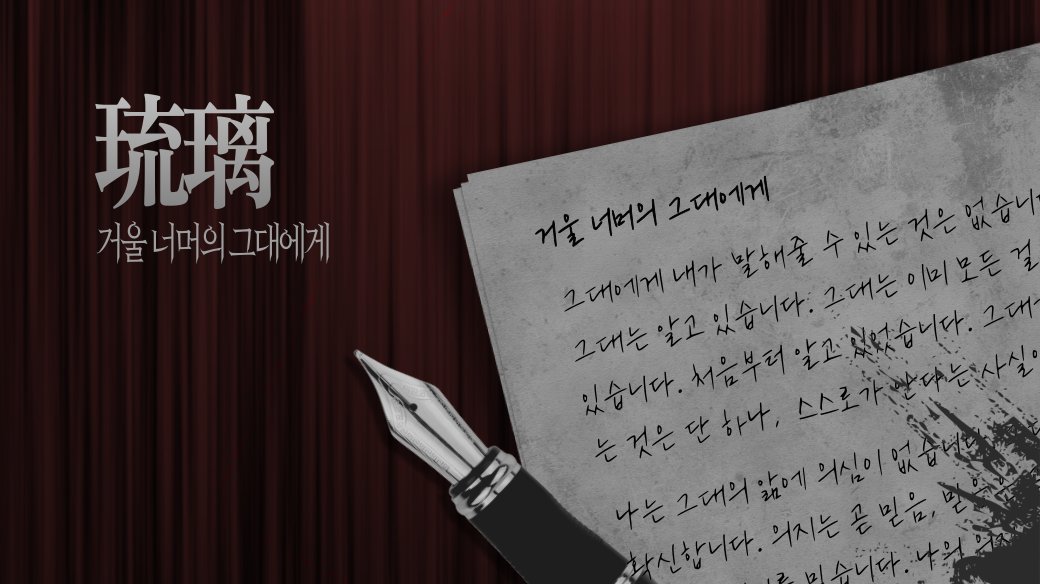 琉璃
거울 너머의 그대에게
거울 너머의 그대에게
그대에게 내가 말해줄 수 있는 것은 없습니
그대는 알고 있습니다. 그대는 이미 모든 걸
있습니다. 처음부터 알고 있었습니다. 그대
는 것은 단 하나, 스스로가 안다는 사실
나는 그대의 앎에 의심이 없습니다.
확신합니다. 의지는 곧 믿음, 믿음은
믿습니다. 나의